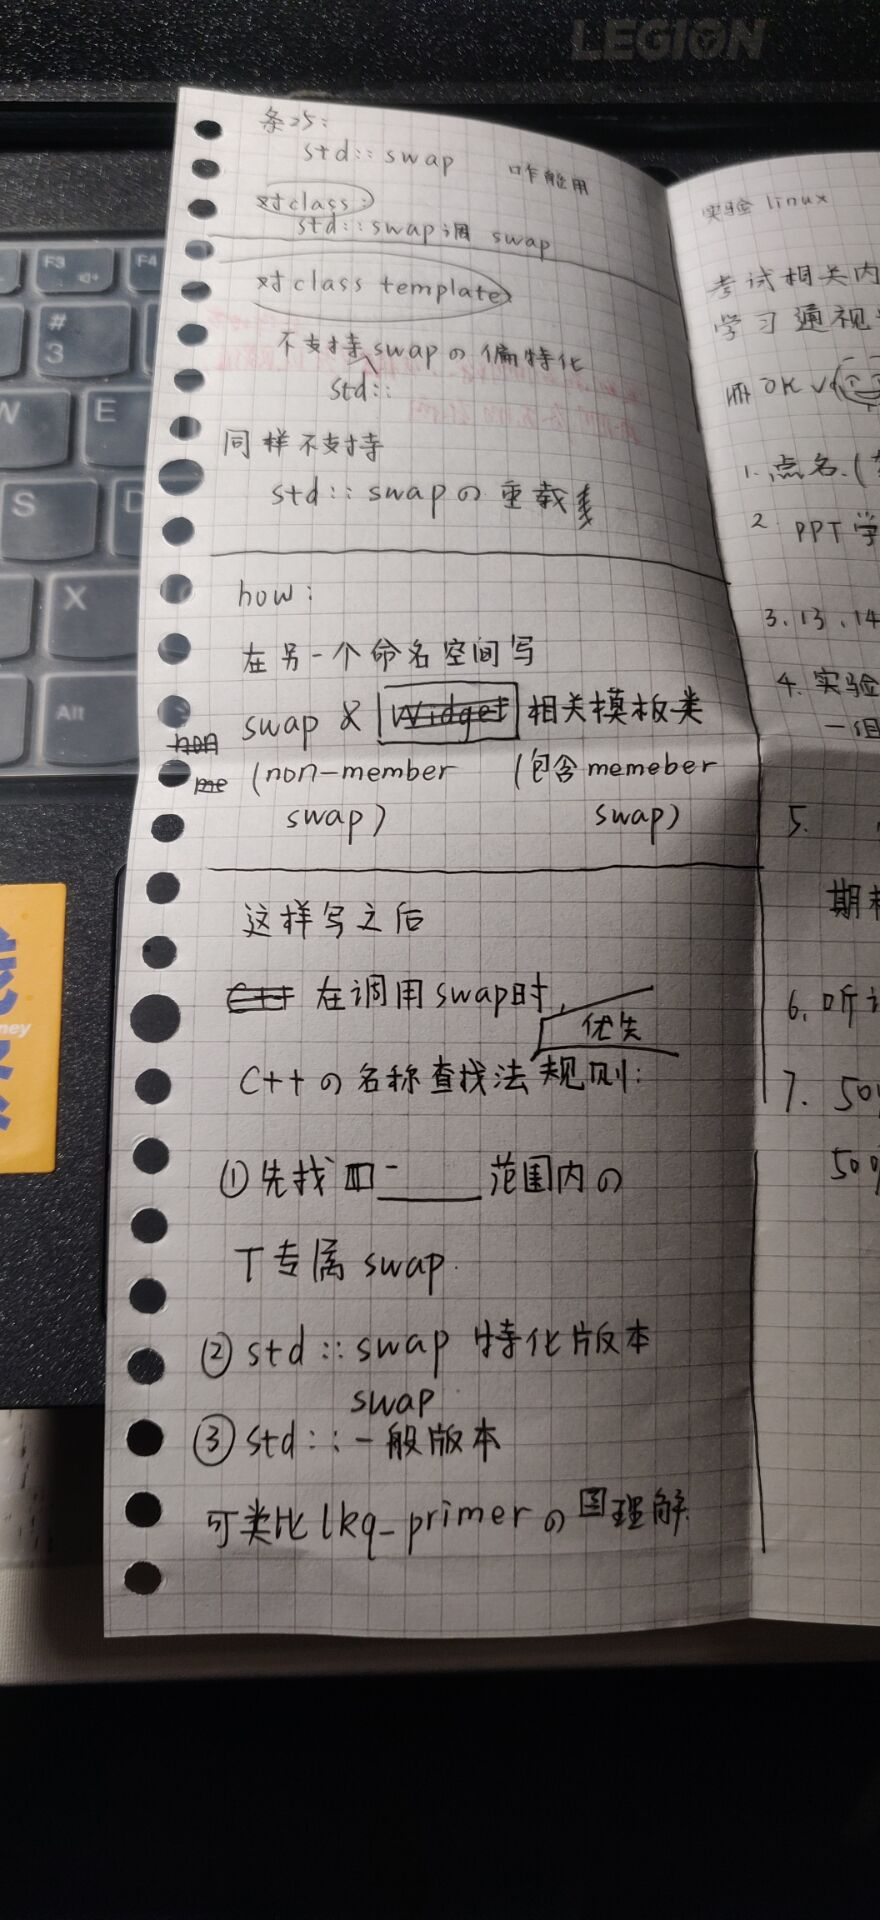 LEGION
条25:
std::swap 咋能用
对class:
std::swap调 swap
对class template
不支持swapの偏特化
std::
同样不支持
std::swapの重载
how:
在另一个命名空间写
swap & Widget 相关模板类
non
me (non-member (包含memeber
swap) swap)
这样写之后
C++ 在调用swap时,
优先
C++の名称查找法规则:
①先找 范围内の
T专属 swap.
②std::swap 特化版本
swap
③std::一般版本
可类比lkq_primerの图理解.
实验 linux
考试相关内
学习通视
OK
1.点名.(
2. PPT学
3. 13、14
4. 实验
一组
5.
期
6. 听
7. 50%
50%
F3
F4
#
3
W
E
S
D
X
Alt
ney